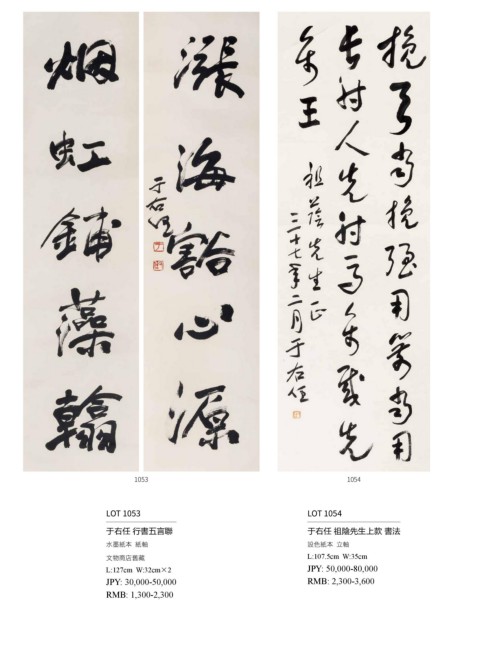 漲海豁心源
烟虹鋪藻翰
于右任
挽弓當挽強用箭當用
長射人先射馬禽賊先
禽王
祖蔭先生正
三十七年二月于右任
1053
1054
LOT 1053
于右任 行書五言聯
水墨紙本 紙軸
文物商店舊藏
L:127cm W:32cm×2
JPY: 30,000-50,000
RMB: 1,300-2,300
LOT 1054
于右任 祖陰先生上款 書法
設色紙本 立軸
L:107.5cm W:35cm
JPY: 50,000-80,000
RMB: 2,300-3,600